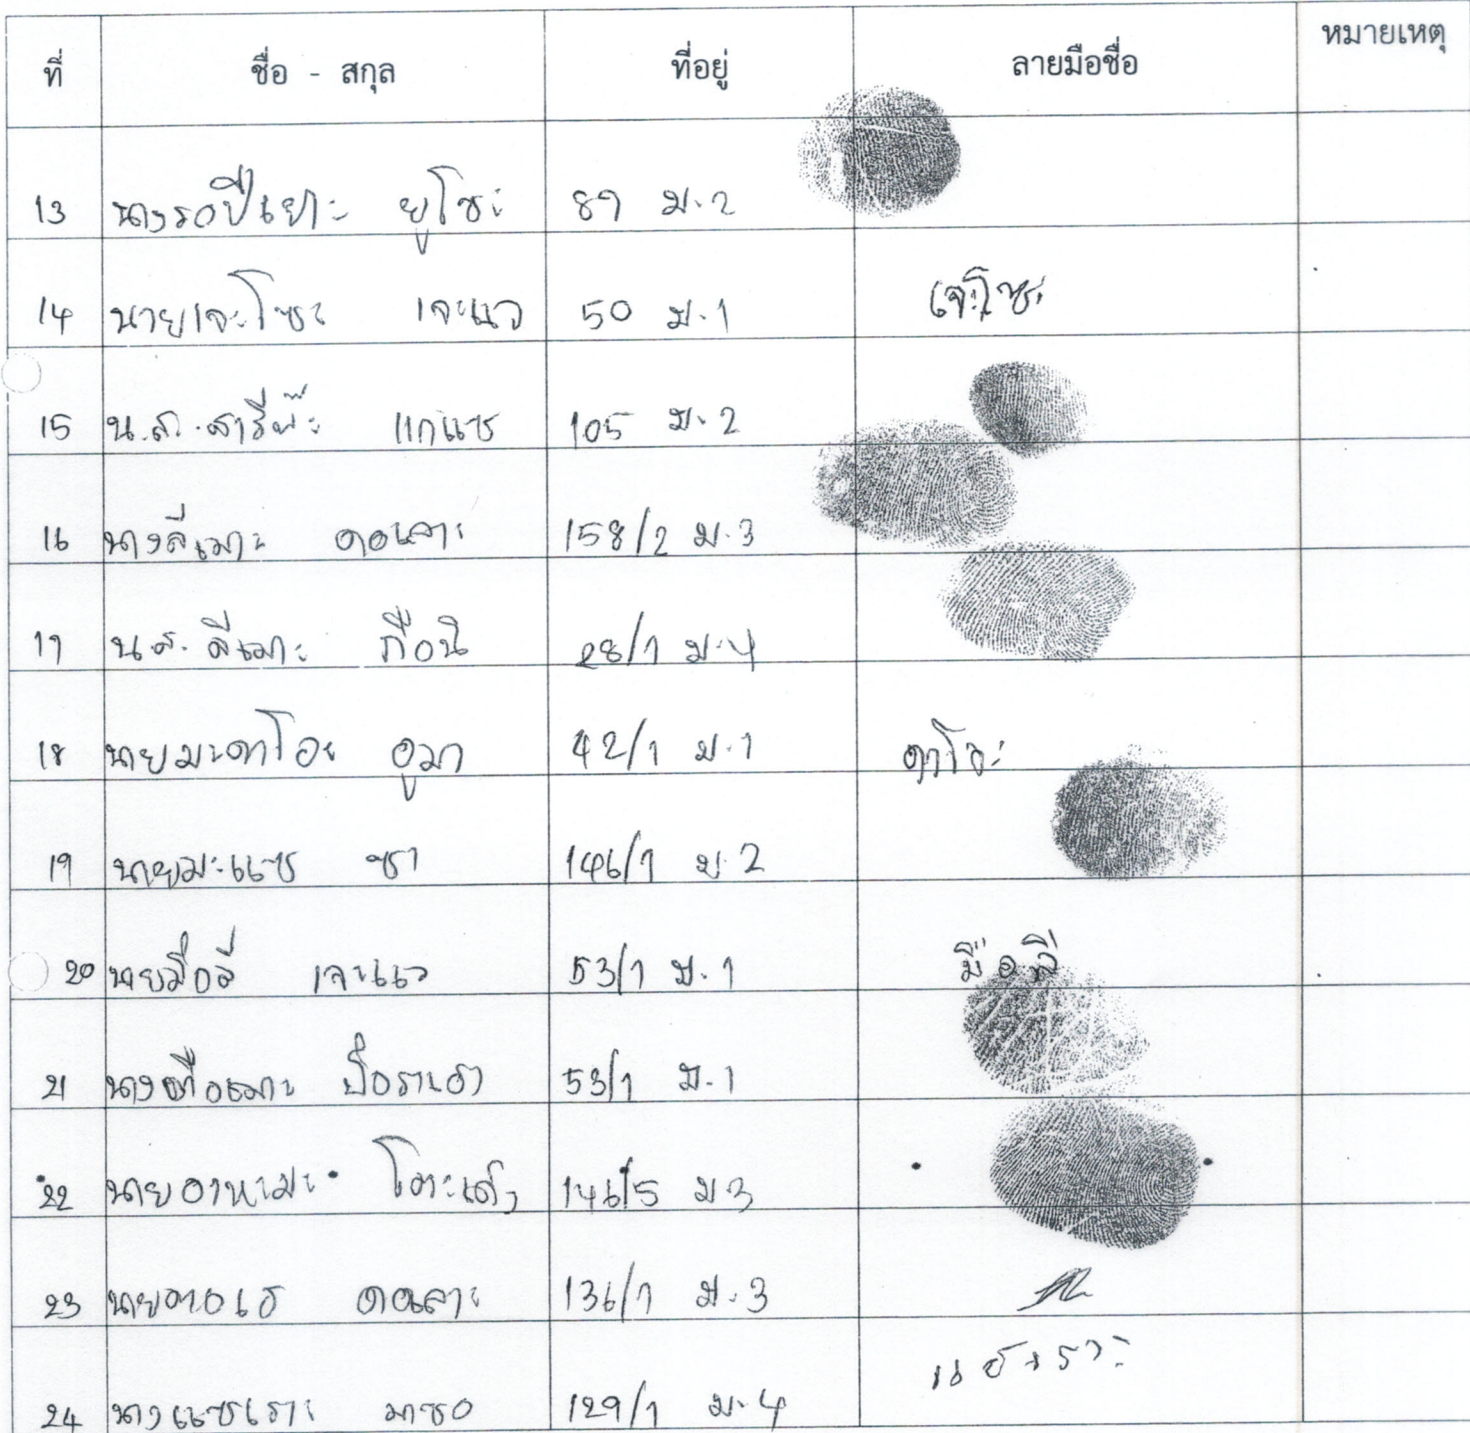 ที่ ชื่อ - สกุล ที่อยู่ ลายมือชื่อ หมายเหตุ
13 นางรอปีเยาะ ยูโซะ 89 ม.2
14 นายเจะโซะ เจะแว 50 ม.1 เจะโซะ
15 น.ส.สารีพ๊ะ แกแซ 105 ม.2
16 นางลีเมาะ ดอเลาะ 158/2 ม.3
17 น.ส.ลีเมาะ กือนิ 28/1 ม.4
18 นายมะดาโอะ อูมา 42/1 ม.1 ดาโอะ
19 นายมะแซ ซา 146/1 ม.2
20 นายมือลี เจะแว 53/1 ม.1 มือลี
21 53/1 ม.1
22 นายอาหะมะ โตะเด็ง 146/5 ม.3
23 ดอเลาะ 136/1 ม.3
24 นางแซเราะ มาซอ 129/1 ม.4